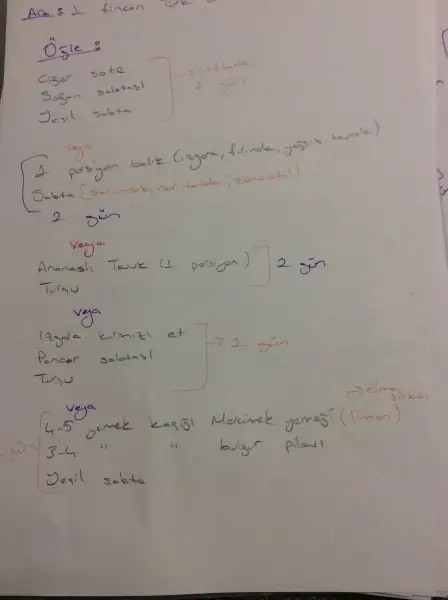 Ara : 1 fincan Türk
Öğle :
Ciğer sote
Soğan salatası
Yeşil salata
2 gün
veya
1 porsiyon balık (ızgara, fırında, yağsız tavada)
Salata
2 gün
veya
Ananaslı Tavuk (1 porsiyon) 2 gün
Turşu
veya
Izgara kırmızı et
Pancar salatası → 1 gün
Turşu
veya
4-5 yemek kaşığı Mercimek yemeği (limon)
3-4 " " bulgur pilavı
Yeşil salata